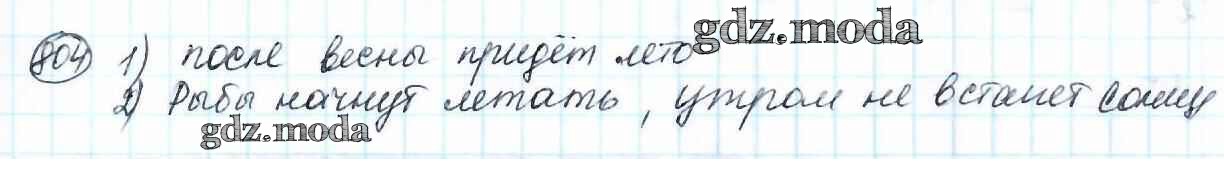 804 1) после весны придёт лето gdz.moda
2) Рыбы начнут летать, утром не встанет солнц
gdz.moda